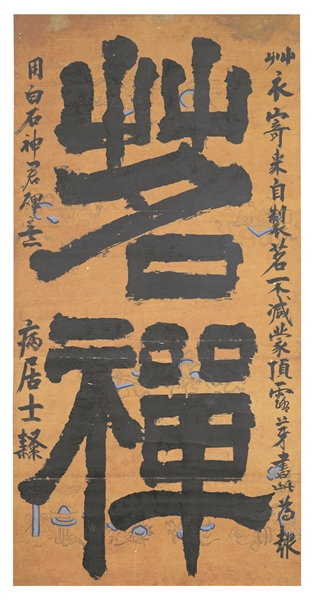 茗禪
艸衣寄来自製茗不減蒙頂露芽書此為報
用白石神君碑意
病居士隸